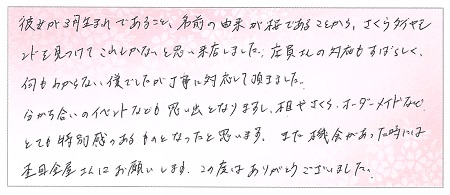 彼女が3月生まれであること、名前の由来が桜であることから、さくらダイヤモ
ンドを見つけてこれしかないと思い来店しました。店員さんの対応もすばらしく、
何もわからない僕でしたが丁寧に対応して頂きました。
分かち合いのイベントなども思い出となりますし、杢目やさくら、オーダーメイドなど、
とても特別感のあるものとなったと思います。また機会があった時には
杢目金屋さんにお願いします。この度はありがとうございました。